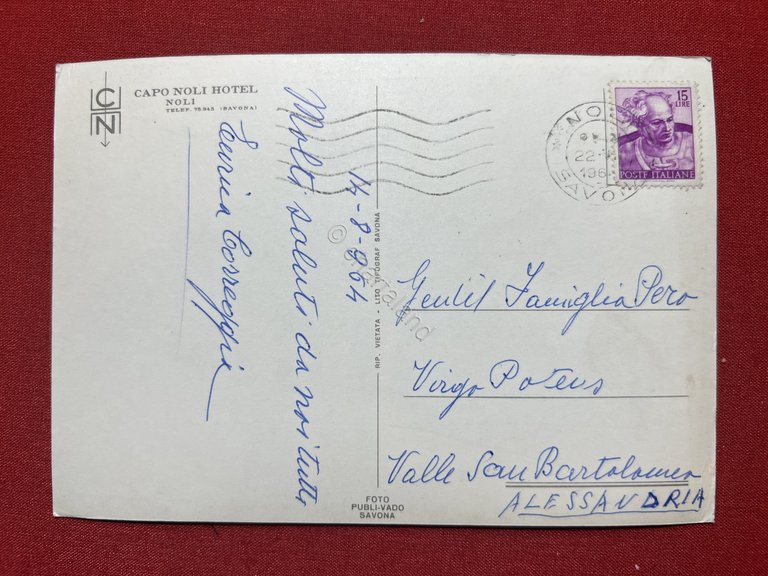 CN
CAPO NOLI HOTEL
NOLI
TELEF. 75.943 (SAVONA)
14-8-964
Molti saluti da noi tutti
Correggia
RIP. VIETATA - LISO TIPOGRAF SAVONA
FOTO
PUBLI-VADO
SAVONA
15
LIRE
POSTE ITALIANE
NO
22-
196
SAVO
Gentil Famiglia Pero
Virgo Potens
Valle San Bartolomeo
ALESSANDRIA